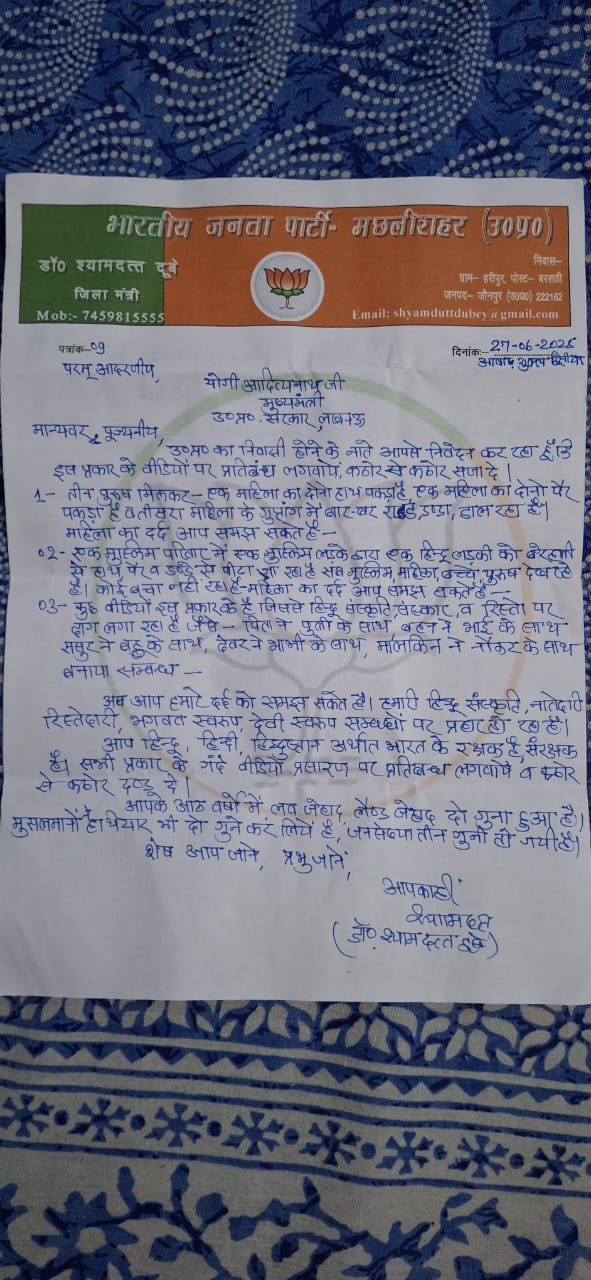 भारतीय जनता पार्टी- मछलीशहर (उ०प्र०)
डॉ० श्यामदत्त दूबे
जिला मंत्री
Mob:- 7459815555
निवास-
ग्राम- हरीपुर, पोस्ट- बरसठी
जनपद- जौनपुर (उ०प्र०) 222162
Email: shyamduttdubey@gmail.com
पत्रांक-09
दिनांक:- 27-06-2025
आषाढ़ शुक्ल द्वितीया
परम् आदरणीय,
योगी आदित्यनाथ जी
मुख्यमंत्री
उ०प्र० सरकार, लखनऊ
मान्यवर, पूज्यनीय,
उ०प्र० का निवासी होने के नाते आपसे निवेदन कर रहा हूँ कि
इस प्रकार के वीडियों पर प्रतिबंध लगवायें, कठोर से कठोर सजा दे।
1- तीन पुरुष मिलकर- एक महिला का दोनो हाथ पकड़ा है, एक महिला का दोनो पैर
पकड़ा है व तीसरा महिला के गुप्तांग में बार-बार डण्डा, डाल रहा है।
महिला का दर्द आप समझ सकते है-
02- एक मुस्लिम परिवार में एक मुस्लिम लड़के द्वारा एक हिन्दू लड़की को बेरहमी
से हाथ पैर व डण्डे से पीटा जा रहा है सब मुस्लिम, महिला, बच्चे, पुरुष देख रहे
है। कोई बचा नही रहा है- महिला का दर्द आप समझ सकते है-
03- कुछ वीडियों इस प्रकार के है जिससे हिन्दू संस्कृति, संस्कार, व रिश्ता पर
दाग लगा रहा है जैसे- पिता ने पुत्री के साथ, बहन ने भाई के साथ
ससुर ने बहु के साथ, देवर ने भाभी के साथ, मालकिन ने नौकर के साथ
बनाया सम्बन्ध-
अब आप हमारे दर्द को समझ सकते है। हमारी हिन्दू संस्कृति, नातेदारी
रिस्तेदारी, भगवत स्वरूप, देवी स्वरूप सम्बन्धों पर प्रहार हो रहा है।
आप हिन्दू, हिन्दी, हिन्दुस्तान अर्थात भारत के रक्षक है, संरक्षक
है। सभी प्रकार के गंदे वीडियों प्रसारण पर प्रतिबन्ध लगवायें व कठोर
से कठोर दण्ड दे।
आपके आठ वर्षो में, लव जेहाद लैण्ड जेहाद दो गुना हुआ है।
मुसलमानों हथियार भी दो गुने कर लिये है, जनसंख्या तीन गुनी हो गयी है।
शेष आप जाने, प्रभु जाने,
आपका ही
श्यामदत्त
(डॉ. श्यामदत्त दूबे)